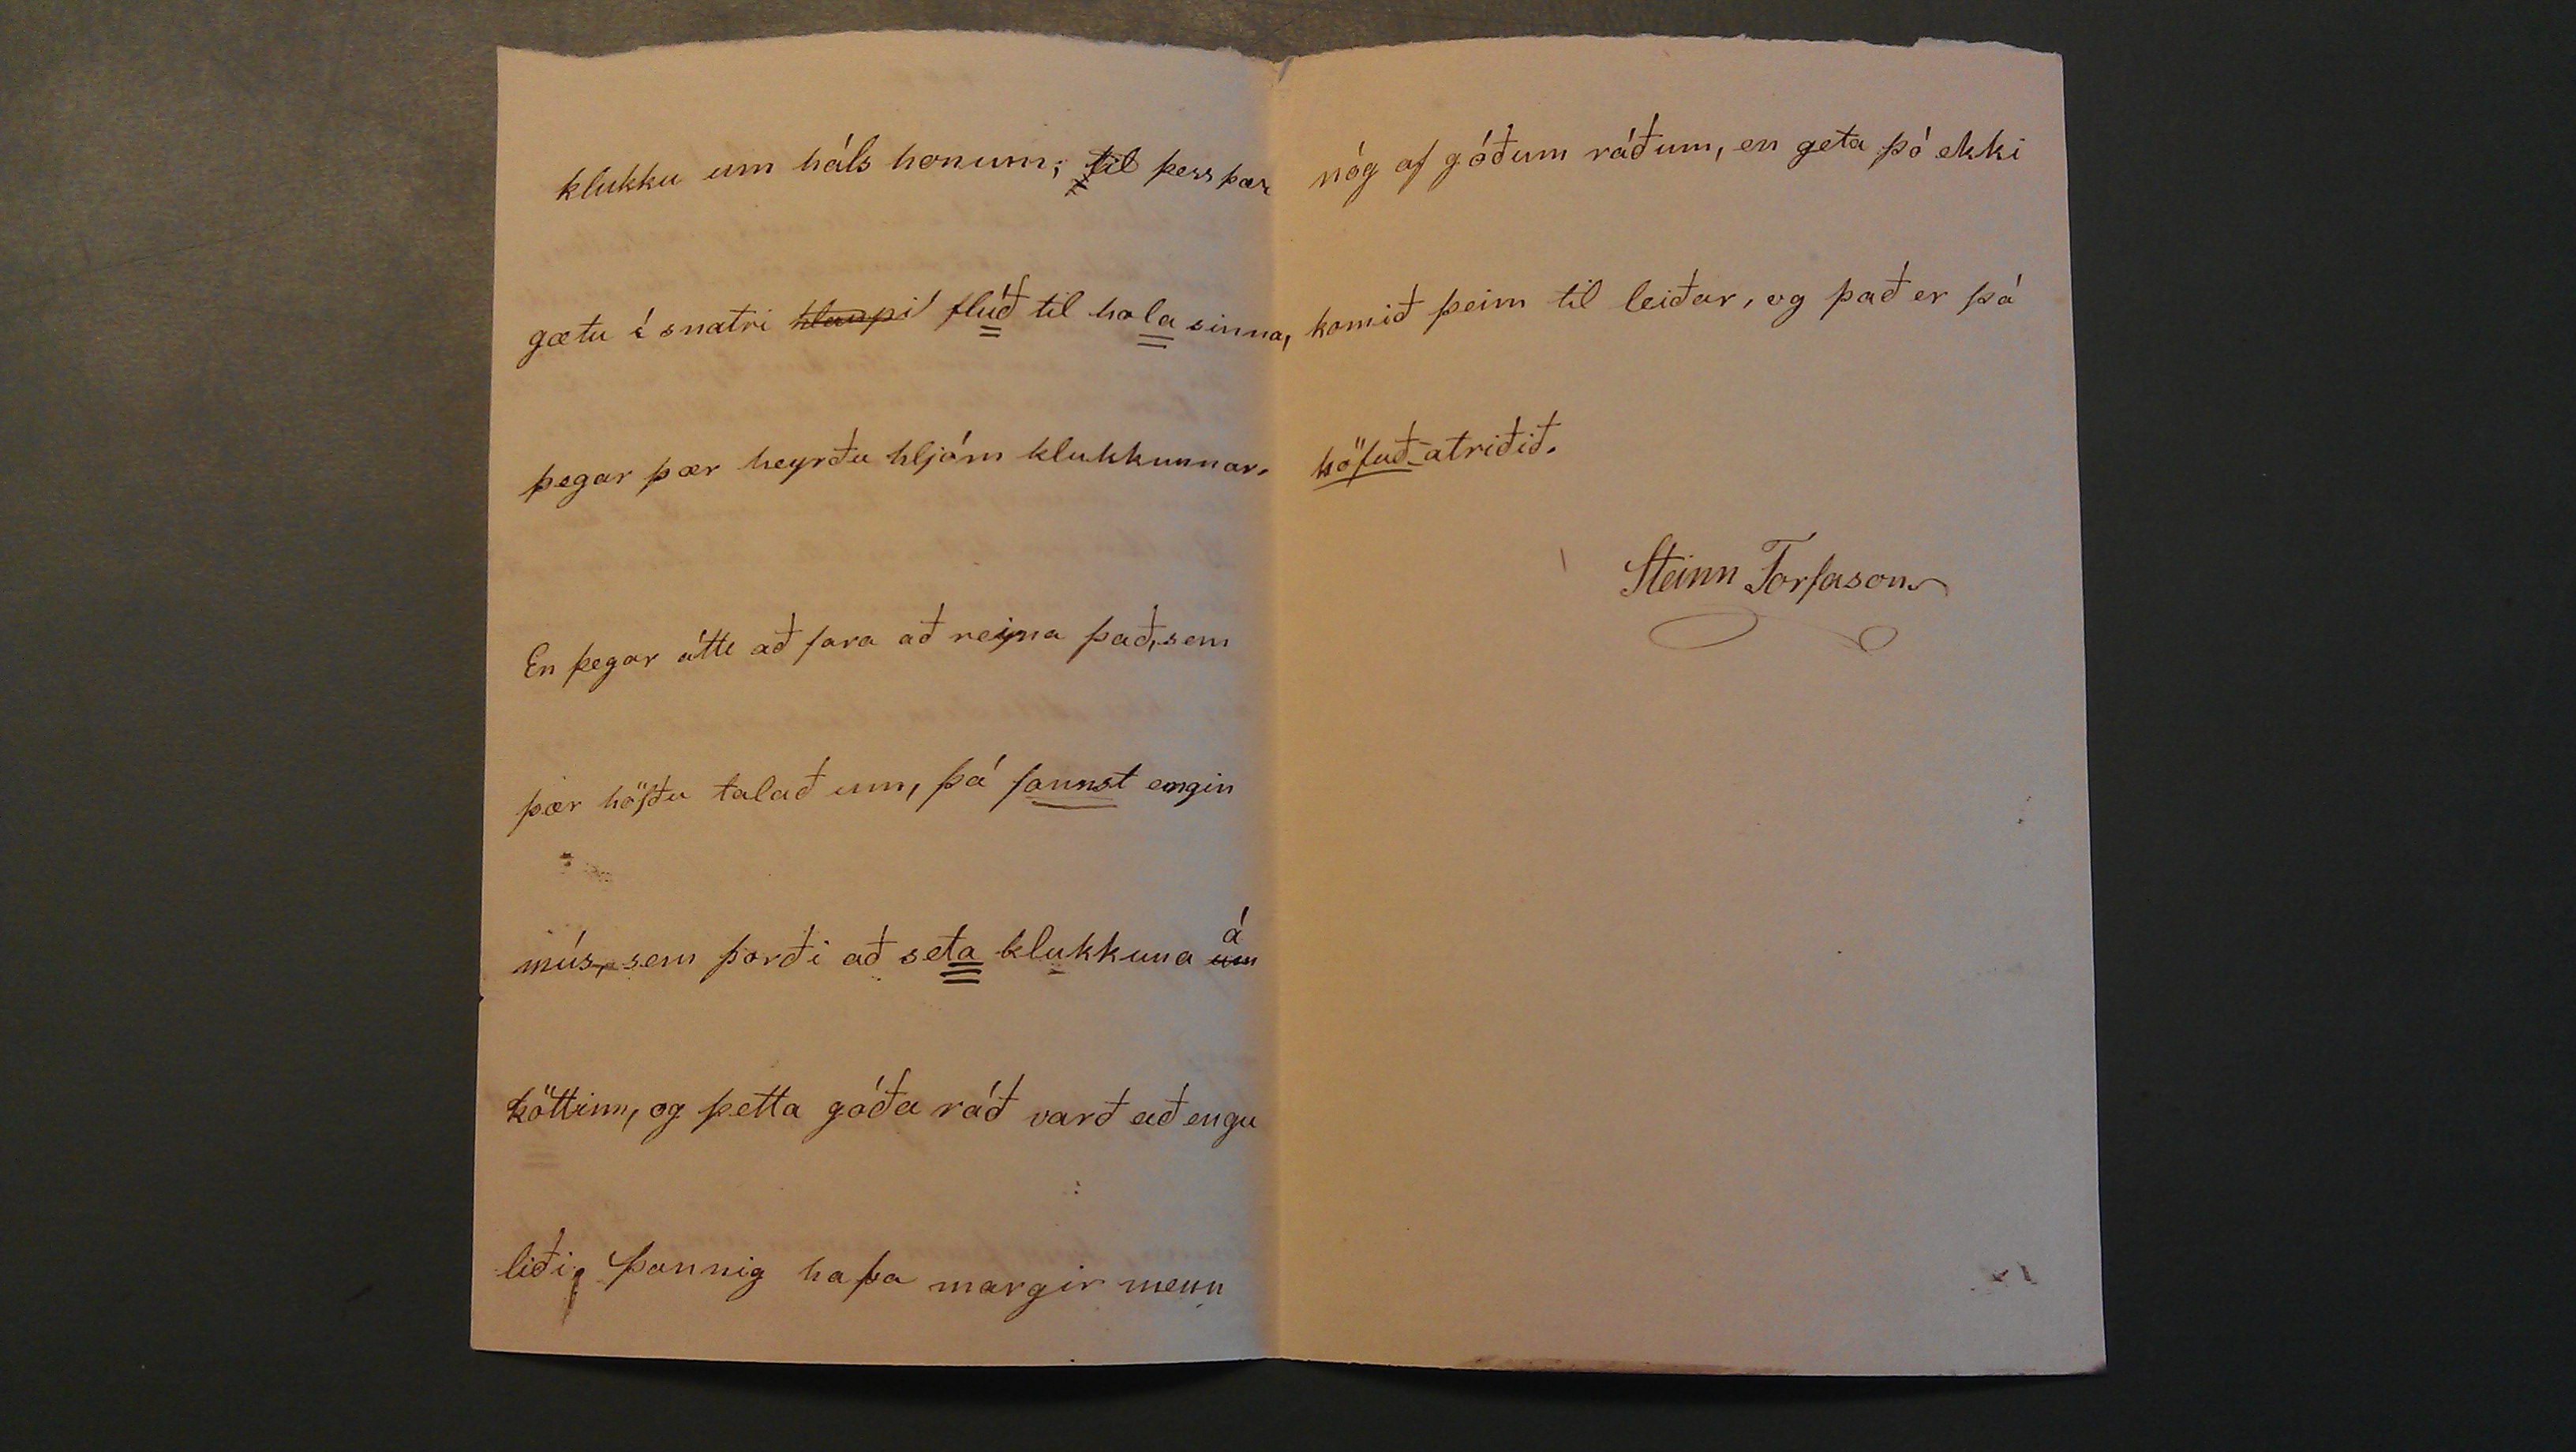 klukku um háls honum; til þess þær
gætu í snatri hlaupi flúð til hola sinna,
þegar þær heyrðu hljóm klukkunnar.
En þegar átti að fara að reyna það, sem
þær höfðu talað um, þá fannst engin
mús, sem þorði að seta klukkuna um á
köttinn, og þetta góða ráð varð að engu
liði. Þannig hafa margir menn
nóg af góðum ráðum, en geta þó ekki
komið þeim til leiðar, og það er þá
höfuð-atriðið.
Steinn Torfason